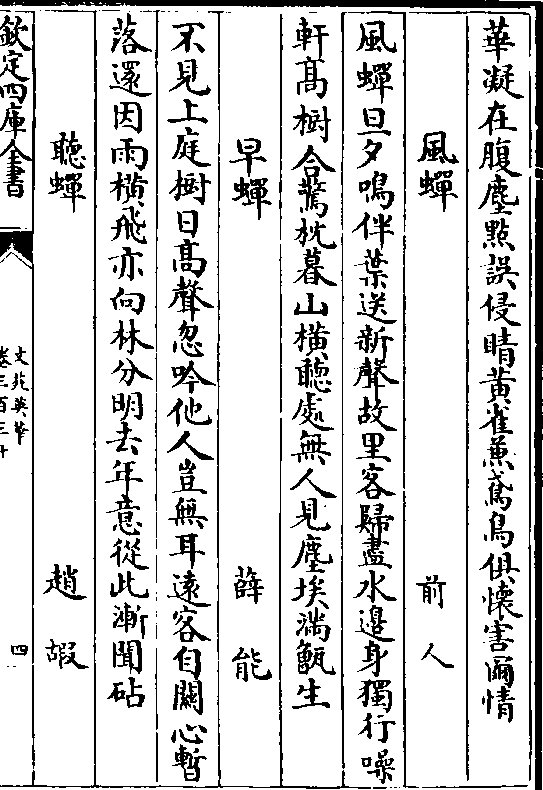 華凝在腹塵㸃誤侵睛黄雀兼鳶鳥俱懷害爾情
風蟬 前人
風蟬旦夕鳴伴葉送新聲故里客歸盡水邉身獨行噪
軒髙樹合驚枕暮山横聽處無人見塵埃滿甑生
早蟬 薛能
不見上庭樹日髙聲忽吟他人豈無耳逺客自闗心暫
落還因雨横飛亦向林分明去年意從此漸聞砧
聽蟬 趙嘏
欽定四庫全書
文苑英華
卷三百三十
四